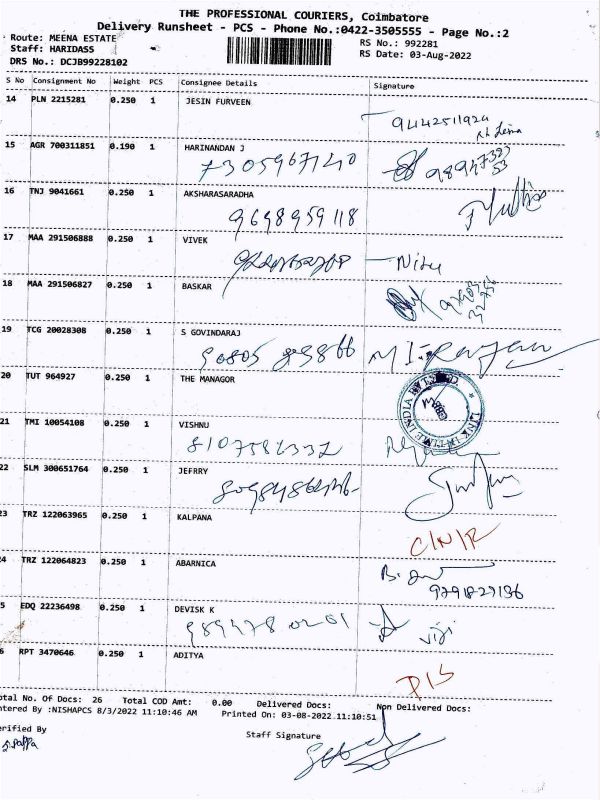 THE PROFESSIONAL COURIERS, Coimbatore
Delivery Runsheet - PCS - Phone No.:0422-3505555 - Page No.:2
Route: MEENA ESTATE
Staff: HARIDASS
DRS No.: DCJB99228102
RS No.: 992281
RS Date: 03-Aug-2022
S No Consignment No Weight PCS Consignee Details Signature
14 PLN 2215281 0.250 1 JESIN FURVEEN
9442511924
15 AGR 700311851 0.190 1 HARINANDAN J
7305967140
16 TNJ 9041661 0.250 1 AKSHARASARADHA
9698959118
17 MAA 291506888 0.250 1 VIVEK
18 MAA 291506827 0.250 1 BASKAR
19 TCG 20028308 0.250 1 S GOVINDARAJ
20 TUT 964927 0.250 1 THE MANAGOR
LINK INTIME INDIA PVT LTD
21 TMI 10054108 0.250 1 VISHNU
8107582332
22 SLM 300651764 0.250 1 JEFRRY
23 TRZ 122063965 0.250 1 KALPANA
24 TRZ 122064823 0.250 1 ABARNICA
5 EDQ 22236498 0.250 1 DEVISK K
9894780201 Jiji
6 RPT 3470646 0.250 1 ADITYA
otal No. Of Docs: 26 Total COD Amt: 0.00 Delivered Docs: Non Delivered Docs:
ntered By :NISHAPCS 8/3/2022 11:10:46 AM Printed On: 03-08-2022.11:10:51
erified By
Staff Signature